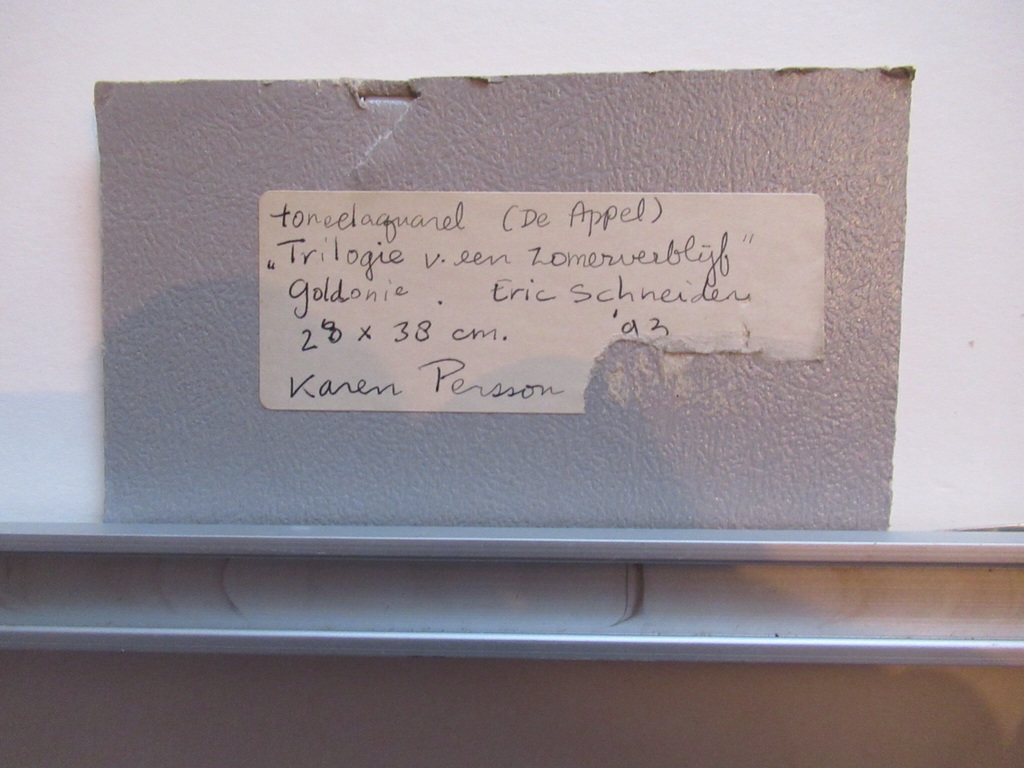 toneelaquarel (De Appel)
„Trilogie v. een zomerverblijf"
Goldonie . Eric Schneider
28 x 38 cm. '93
Karen Persson